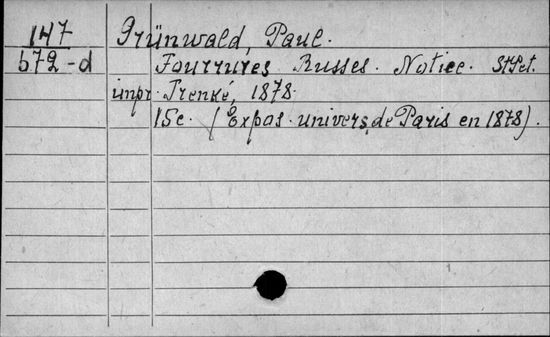 147 Grünwald, Paul.
672-d Fourrures Russes. Notice. St Pet.
impr. Trenké, 1878.
15c. (Expos. univers. de Paris en 1878).